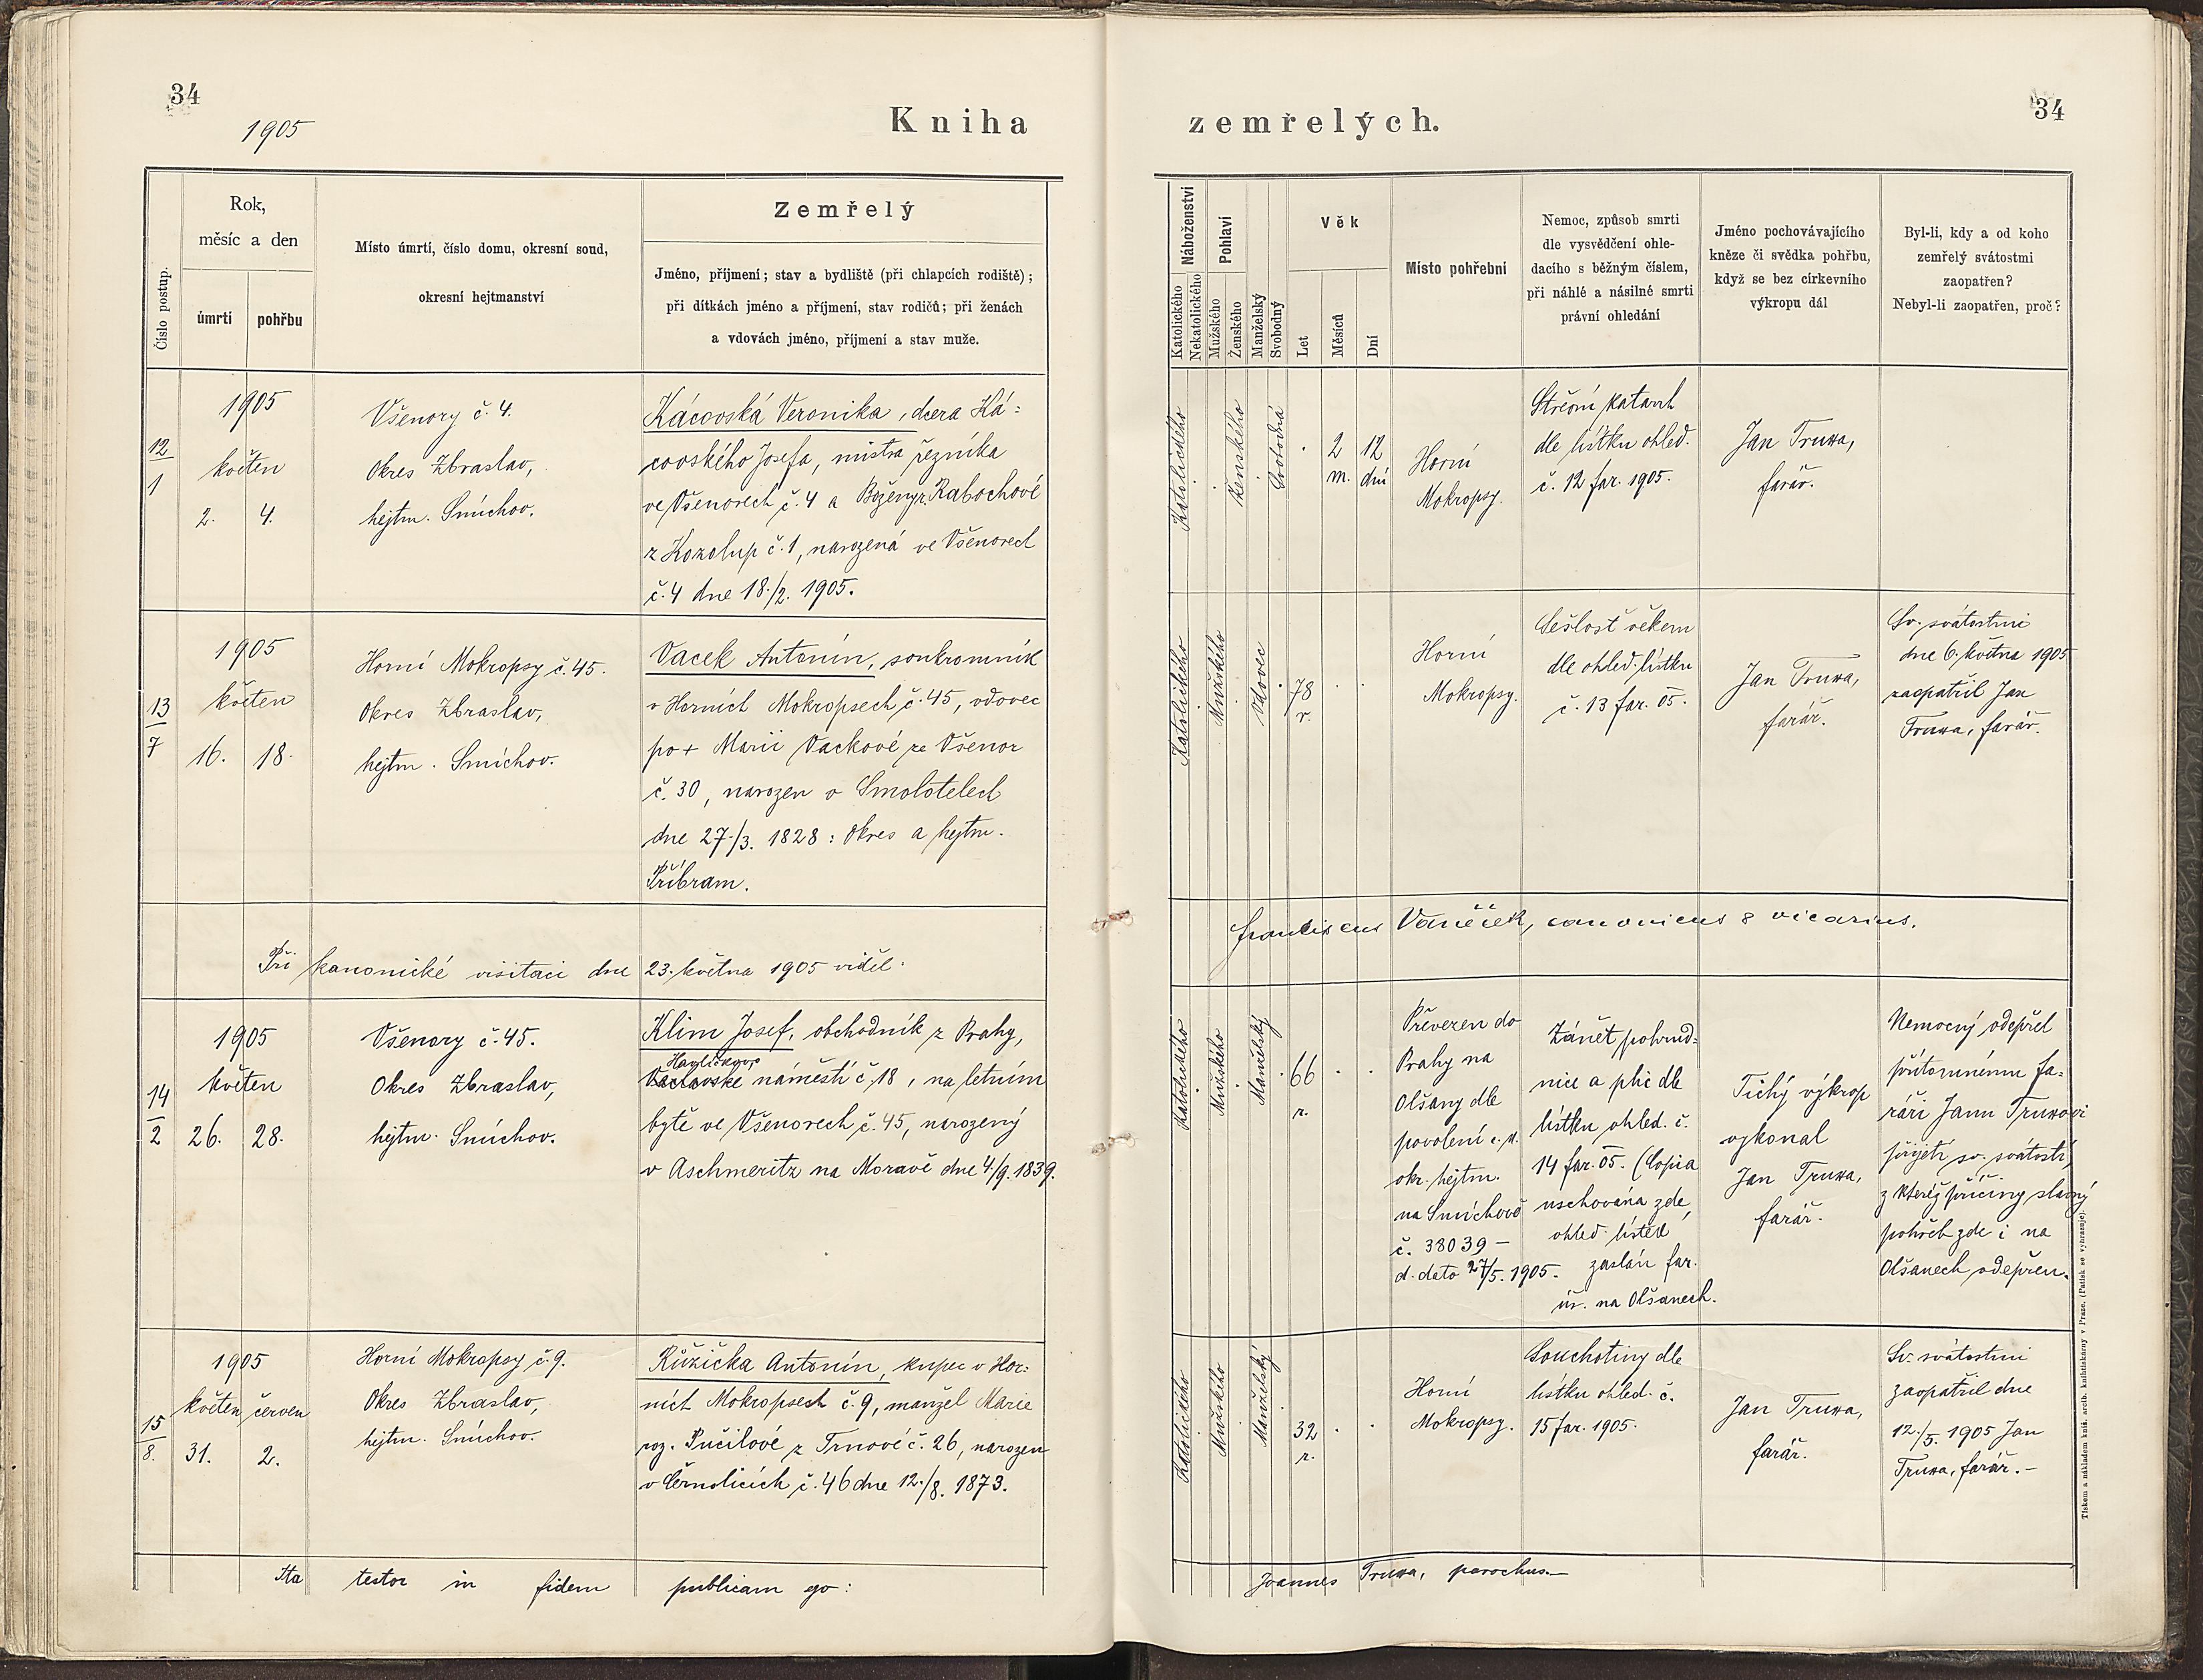 34
1905
Kniha
zemřelých.
34
Číslo postup.
Rok,
měsíc a den
úmrtí
pohřbu
Místo úmrtí, číslo domu, okresní soud,
okresní hejtmanství
Zemřelý
Jméno, příjmení; stav a bydliště (při chlapcích rodiště);
při dítkách jméno a příjmení, stav rodičů; při ženách
a vdovách jméno, příjmení a stav muže.
Náboženství
Katolického
Nekatolického
Pohlaví
Mužského
Ženského
Manželský
Svobodný
Věk
Let
Měsíců
Dní
Místo pohřební
Nemoc, způsob smrti
dle vysvědčení ohle-
dacího s běžným číslem,
při náhlé a násilné smrti
právní ohledání
Jméno pochovávajícího
kněze či svědka pohřbu,
když se bez církevního
výkropu dál
Byl-li, kdy a od koho
zemřelý svátostmi
zaopatřen?
Nebyl-li zaopatřen, proč?
12
1
1905
květen
2. 4.
Všenory č. 4.
Okres Zbraslav,
hejtm. Smíchov.
Kácovská Veronika, dcera Ká-
covského Josefa, mistra řezníka
ve Všenorech č. 4 a Boženy r. Rabochové
z Kozolup č. 1, narozená ve Všenorech
č. 4 dne 18./2. 1905.
Katolického
Ženského
Svobodná
2
m.
12
dní
Horní
Mokropsy.
Střevní katarrh
dle lístku ohled.
č. 12 far. 1905.
Jan Truxa,
farář.
13
7
1905
květen
16. 18.
Horní Mokropsy č. 45.
Okres Zbraslav,
hejtm. Smíchov.
Vacek Antonín, soukromník
v Horních Mokropsech č. 45, vdovec
po + Marii Vackové ze Všenor
č. 30, narozen v Smolotelech
dne 27./3. 1828: Okres a hejtm.
Příbram.
Katolického
Mužského
Vdovec
78
r.
Horní
Mokropsy.
Sešlost věkem
dle ohled. lístku
č. 13 far. 05.
Jan Truxa,
farář.
Sv. svátostmi
dne 6. května 1905
zaopatřil Jan
Truxa, farář.
Při kanonické visitaci dne 23. května 1905 viděl:
Franciscus Vaněček, canonicus & vicarius.
14
2
1905
květen
26. 28.
Všenory č. 45.
Okres Zbraslav,
hejtm. Smíchov.
Klim Josef, obchodník z Prahy,
Havlíčkovo
Václavské náměstí č. 18, na letním
bytě ve Všenorech č. 45, narozený
v Aschmeritz na Moravě dne 4./9. 1839.
Katolického
Mužského
Manželský
66
r.
Převezen do
Prahy na
Olšany dle
povolení c. k.
okr. hejtm.
na Smíchově
č. 38039 —
d. dato 27/5. 1905.
Zánět pohrud-
nice a plic dle
lístku ohled. č.
14 far. 05. (Copia
uschována zde,
ohled. lístek
zaslán far.
úř. na Olšanech.
Tichý výkrop
vykonal
Jan Truxa,
farář.
Nemocný odepřel
přítomnému fa-
ráři Janu Truxovi
přijetí sv. svátostí,
z kteréž příčiny slavný
pohřeb zde i na
Olšanech odepřen.
15
8.
1905
květen červen
31. 2.
Horní Mokropsy č. 9.
Okres Zbraslav,
hejtm. Smíchov.
Růžička Antonín, kupec v Hor-
ních Mokropsech č. 9, manžel Marie
roz. Pučilové z Trnové č. 26, narozen
v Černolicích č. 46 dne 12./8. 1873.
Katolického
Mužského
Manželský
32
r.
Horní
Mokropsy.
Souchotiny dle
lístku ohled. č.
15 far. 1905.
Jan Truxa,
farář.
Sv. svátostmi
zaopatřil dne
12./5. 1905 Jan
Truxa, farář. —
Ita testor in fidem publicam ego:
Joannes Truxa, parochus.—
Tiskem a nákladem kníž. arcib. knihtiskárny v Praze. (Patisk se vyhrazuje).